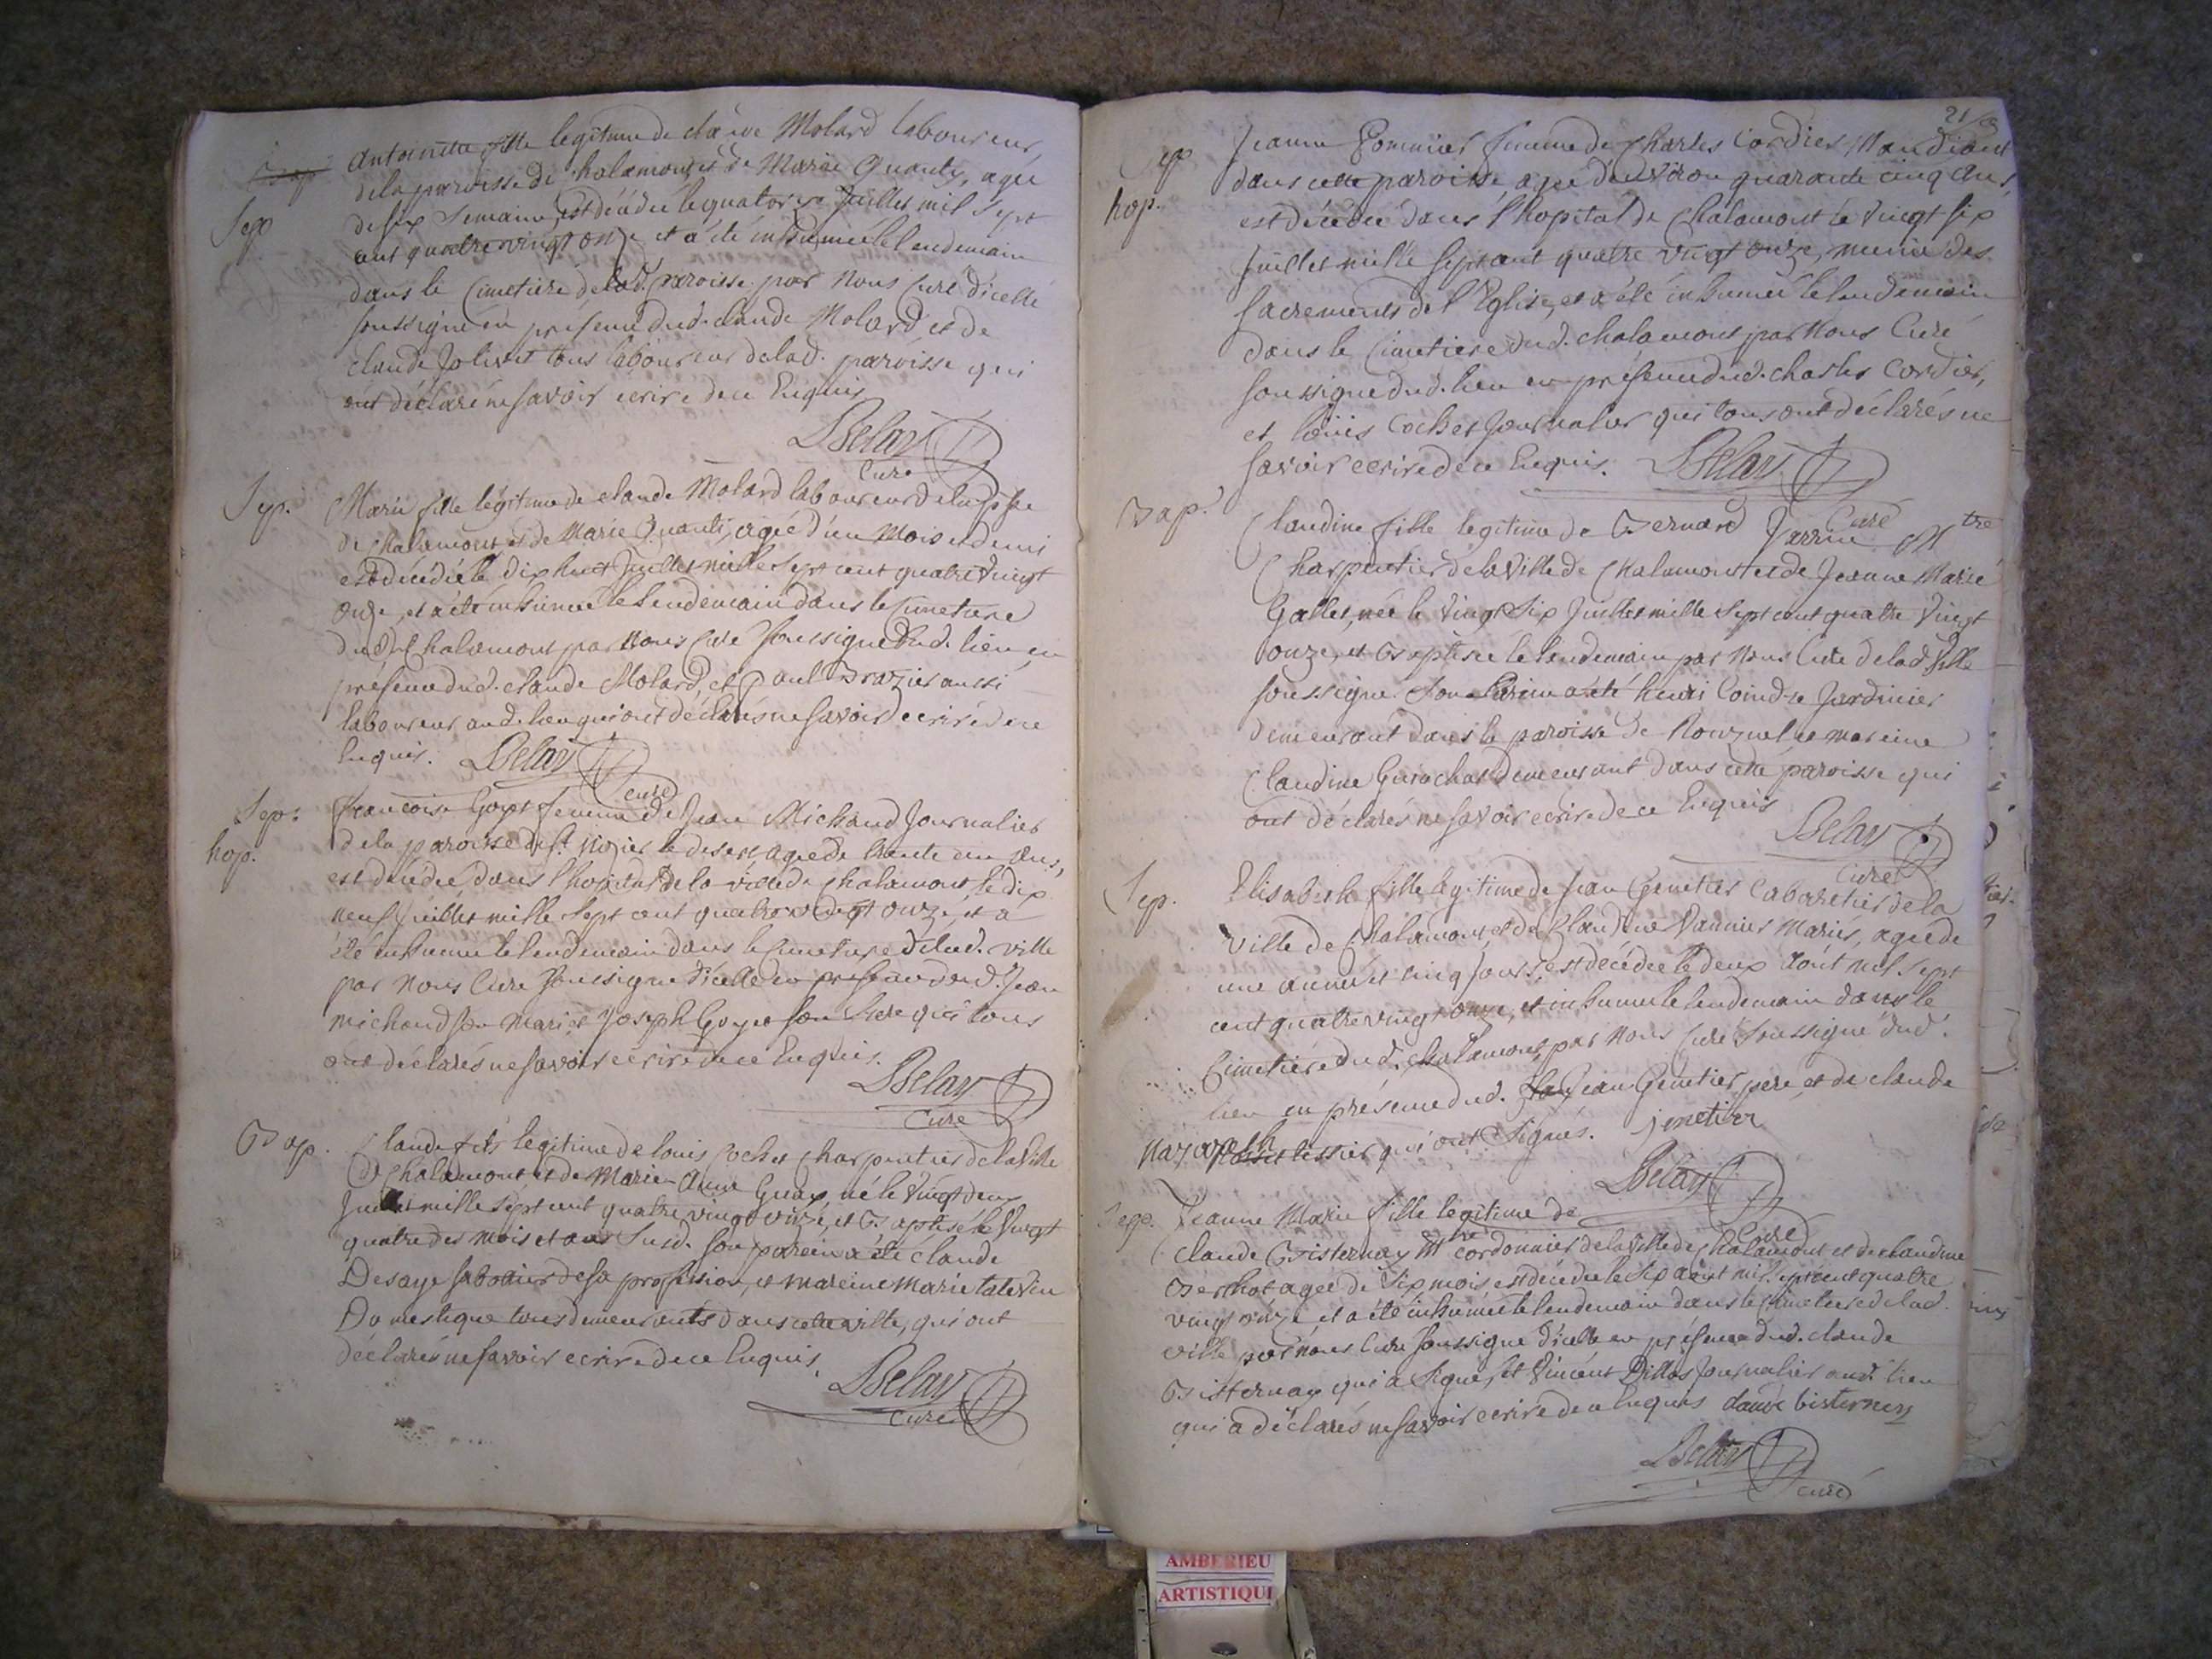 Antoinette fille legitime de claude Molard laboureur,
de la paroisse de chalamont et de Marie Quanty, agée
Sep
de six Semaines est décédée le quatorze Juillet mil sept
cent quatre vingt onze et a été inhumée le lendemain
dans le Cimetiere de lad. paroisse par nous Curé d'icelle
soussigné en présence dud. claude Molard et de
claude Jolivet tous laboureur de lad. paroisse qui
ont déclaré ne savoir ecrire de ce Enquis
Belay
Curé
Sep.
Marie fille légitime de claude Molard laboureur de la psse
de Chalamont, et de Marie Quanti, agée d'un Mois et demi
est décédée le dix huit Juillet mille Sept cent quatre Vingt
onze, et a été inhumée le lendemain dans le Cimetiere
dud. Chalamont par nous Curé soussigné dud. lieu en
présence dud. claude Molard, et Paul Brazier aussi
laboureur aud. lieu qui ont déclarés ne savoir ecrire de ce
Enquis. Belay
curé
Sep.
hop.
francoise Goyet femme de Jean Michaud Journalier
de la paroisse de St. Nizier le desert agée de trente un Ans,
est décédée dans l'hopital de la ville de Chalamont le dix
neuf Juillet mille Sept cent quatre vingt onze, et a
été inhumée le lendemain dans le Cimetiere de lad. ville
par nous Curé soussigné d'icelle en présence dud. Jean
michaud son Mari et Joseph Goyet son frere qui tous
ont déclarés ne savoir écrire de ce Enquis.
Belay
Curé
Bap.
Claude fils legitime de louis Cochet Charpentier de la Ville
de Chalamont, et de Marie-Anne Guay, né le Vingt deux
Juillet mille Sept cent quatre vingt onze, et Baptisé le Vingt
quatre des mois et an Susd. son parein a été claude
Desaye sabotier de sa profession, et mareine Marie
Domestique tous demeurants dans cette ville, qui ont
déclarés ne savoir ecrire de ce Enquis.
Belay
Curé
21
Sep
hop.
Jeanne Pommier femme de Charles Cordier Mandiant
dans cette paroisse agée d'environ quarante cinq Ans,
est décédée dans l'hopital de Chalamont le vingt six
Juillet mille Sept cent quatre vingt onze, munie des
sacrements de l'Eglise, et a été inhumée le lendemain
dans le Cimetiere dud. chalamont par Nous Curé
soussigné dud. lieu en présence dud. charles Cordier,
et loüis Cochet Journalier qui tous ont déclarés ne
savoir ecrire de ce Enquis. Belay
Curé
Bap.
Claudine fille legitime de Bernard Jarrin Mtre
Charpentier de la Ville de Chalamont et de Jeanne Marie
Gallet, née le Vingt Six Juillet mille Sept cent quatre Vingt
onze, et Baptisée le lendemain par nous Curé de lad. Ville
soussigné. Son Parein a été henri Coindre Jardinier
demeurant dans la paroisse de et mareine
Claudine demeurant dans cette paroisse qui
ont déclarés ne savoir ecrire de ce Enquis
Belay
Curé
Sep.
Elisabeth fille legitime de Jean Genetier Cabaretier de la
Ville de Chalamont, et de Claudine Vannier Mariés, agée de
une année et cinq Jours, est décédée le deux Août mil Sept
cent quatre vingt onze, et inhumée le lendemain dans le
Cimetiere dud. Chalamont, par Nous Curé soussigné dud.
lieu en présence dud. Jean Genetier, pere, et de claude
qui ont Signés. jenetier
Belay
Curé
Sep.
Jeanne Marie fille legitime de
claude Bisternay Mtre cordonnier de la Ville de Chalamont et de claudine
Berthot agée de Six mois est décédée le Six août mil sept cent quatre
vingt onze, et a été inhumée le lendemain dans le Cimetiere de lad.
ville par nous Curé soussigné d'icelle en présence dud. claude
Bisternay qui a Signé, et Vincent Journalier aud. lieu
qui a déclarés ne savoir ecrire de ce Enquis claude bisternay
Belay
curé
AMBERIEU
ARTISTIQU